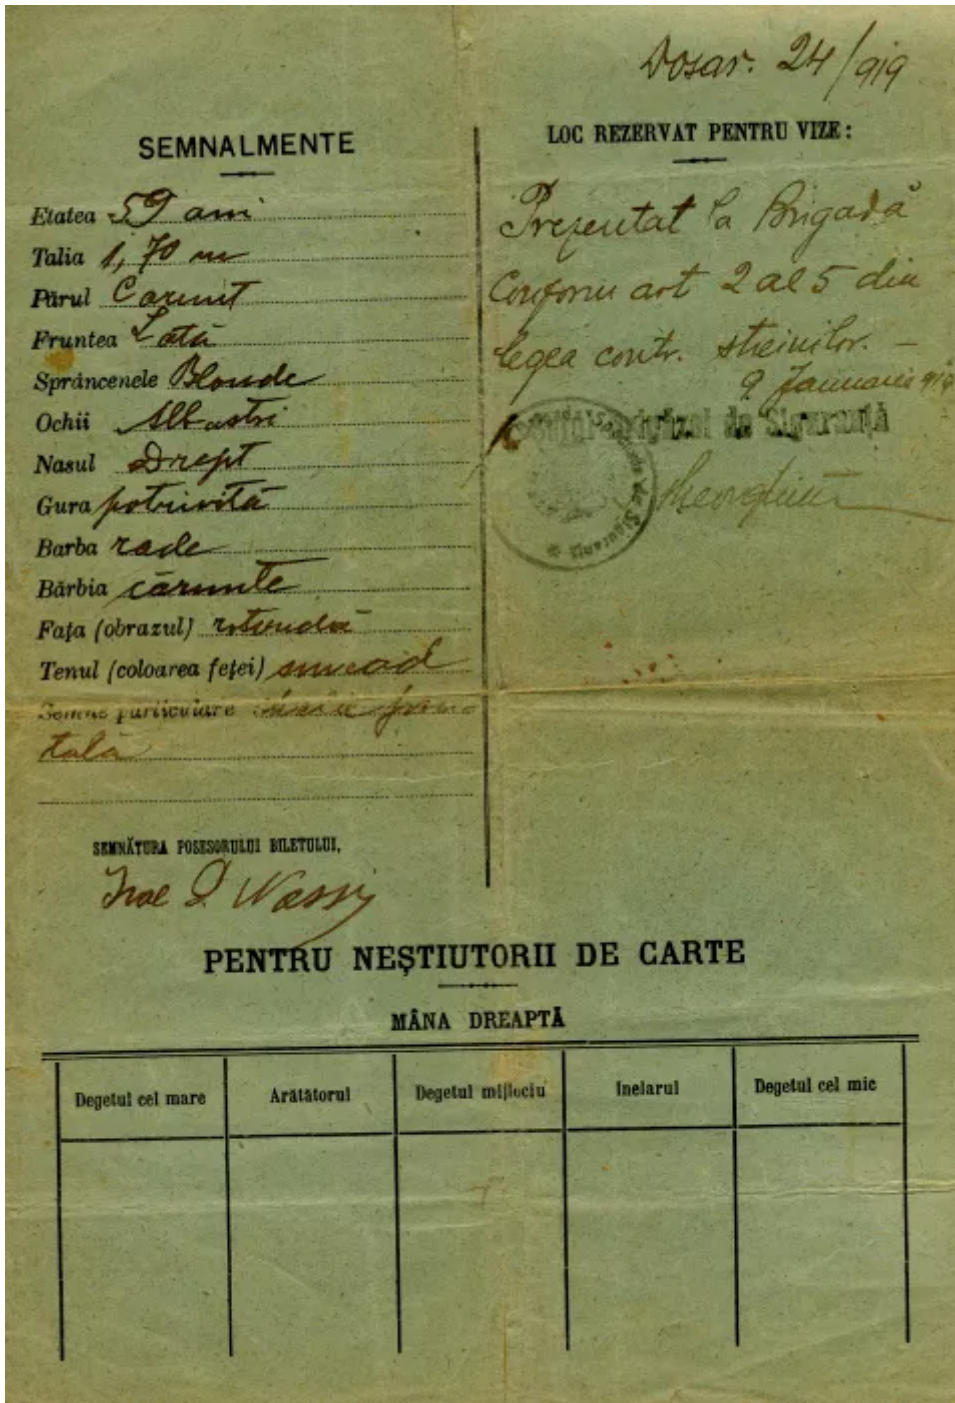 Dosar. 24/919
SEMNALMENTE
Etatea 59 ani
Talia 1,70 m
Părul Carunt
Fruntea Lată
Sprâncenele Blonde
Ochii Albastri
Nasul Drept
Gura potrivită
Barba rade
Bărbia cărunte
Fața (obrazul) rotundă
Tenul (coloarea feței) smead
Semne particulare
SEMNĂTURA POSESORULUI BILETULUI,
LOC REZERVAT PENTRU VIZE:
Prezentat la Brigadă
Conform art 2 al 5 din
legea contr. streinilor. —
9 Januarie 919
de Siguranță
PENTRU NEȘTIUTORII DE CARTE
MÂNA DREAPTĂ
Degetul cel mare
Arătătorul
Degetul mijlociu
Inelarul
Degetul cel mic